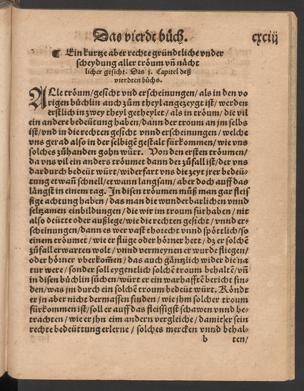 Das vierdt bůch. cxciij
Ein kurtze aber rechte gründtliche vnder
scheydung aller tröum vñ nächt
licher gesicht. Das j. Capitel deß
vierdten bůchs.
ALle tröum/ gesicht vnd erscheinungen/ als in den vo
rigen bůchlin auch zům theyl angezeygt ist/ werden
erstlich in zwey theyl getheylet/ als in tröum/ die vil
ein andere bedeütung haben/ dann der troum an jm selbs
ist/ vnd in die rechten gesicht vnnd erscheinungen/ welche
vns gerad also in der selbigẽ gestalt fürkommen/ wie vns
solches zůhanden gohn würt. Von den ersten tröumen/
da vns vil ein anders tröumet dann der zůfall ist/ der vns
dardurch bedeüt würt/ widerfart vns die zeyt jrer bedeü-
tung etwan schnell/ etwann langsam/ aber doch auff das
längst in einem tag. In disen tröumen můß man gar fleis
sige achtung haben/ das man die wunderbarlichen vnnd
seltzamen einbildungen/ die wir im troum für haben/ nit
also deütte oder außlege/ wie die rechten gesicht/ vnnd er-
scheinungen/ dann es wer vast thorecht vnnd spötlich/ so
einem troumet/ wie er flüge oder hörner hett/ dz er solchẽ
zůfall erwarten wolt/ vnnd vermeynen er wurde fliegen/
oder hörner vberkom̃en/ das auch gäntzlich wider die na
tur were/ sonder soll eygentlich solchẽ troum behaltẽ/ vñ
in disen bůchlin sůchen/ würt er ein warhafftẽ bericht fin-
den/ was jm durch ein solchẽ troum bedeüt würt. Köndt
er ja aber nicht dermassen finden/ wie jhm solcher troum
fürkommen ist/ soll er auff das fleissigst schawen vnnd be-
trachten/ wie er jhn eim andern vergleiche/ damit er sein
rechte bedeüttung erlerne/ solches mercken vnnd behal-
b ten/